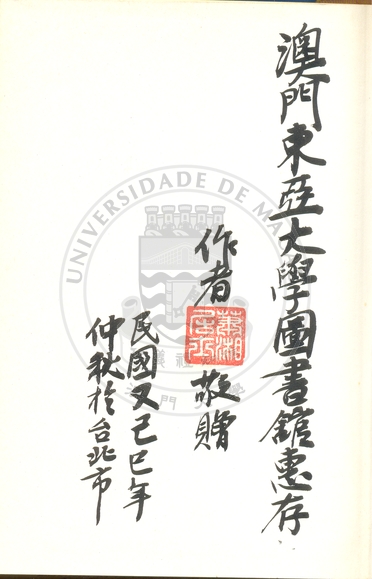 澳門東亞大學圖書舘惠存
作者
蕭湘
居士
敬贈
民國又己巳年
仲秋於台北市
UNIVERSIDADE DE MA